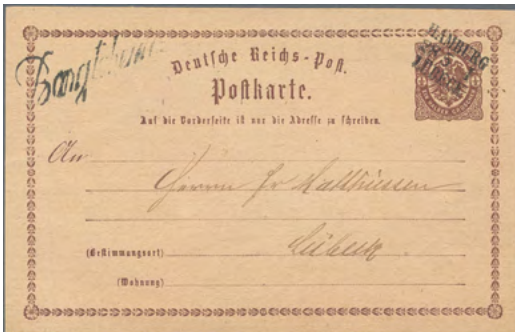 HAMBURG
Deutsche Reichs-Post.
Postkarte.
Auf die Vorderseite ist nur die Adresse zu schreiben.
An
Herrn Fr
Lübeck
(Bestimmungsort)
(Wohnung)